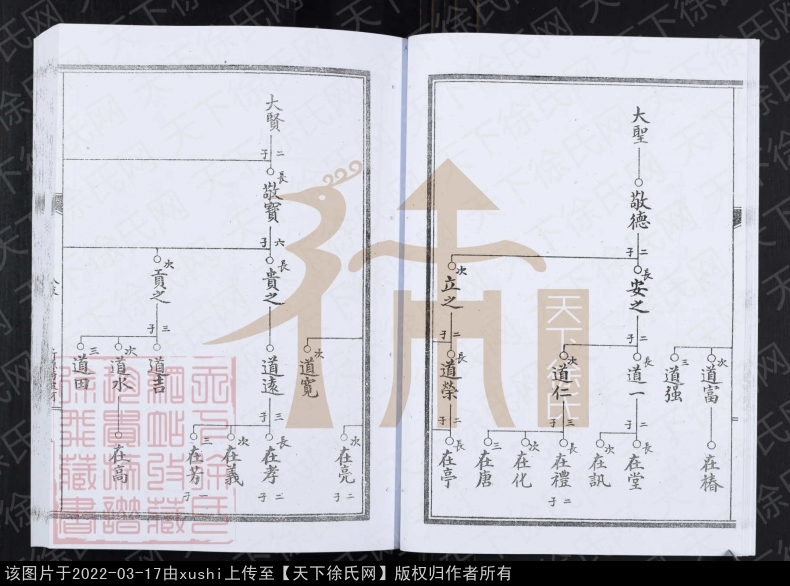 大聖
敬德
二子
長
安之
次
立之
二子
二子
次
道富
三
道强
長
道一
次
道仁
長
道榮
二子
三子
二子
在椿
長
在堂
次
在訊
長
在禮
次
在化
三
在唐
長
在亭
二子
大賢
二子
長
敬寶
六子
長
貴之
次
貢之
三子
次
道寬
道遠
道吉
次
道水
三
道田
三子
次
在亮
長
在孝
次
在義
三
在芳
在高
二子
二子
一子
天下徐氏
天下徐氏网
该图片于2022-03-17由xushi上传至【天下徐氏网】版权归作者所有